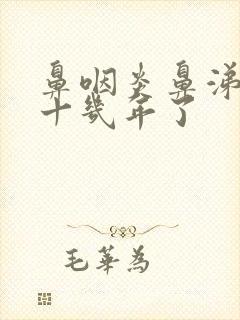 鼻咽炎鼻涕
十幾年了
毛華為